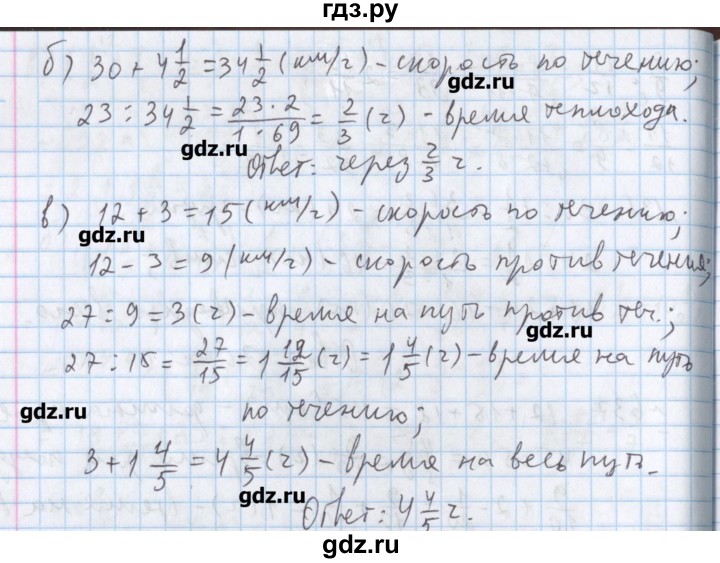 гдз.ру
б) 30 + 4 1/2 = 34 1/2 (км/ч) - скорость по течению;
23 : 34 1/2 = 23 · 2 / 1 · 69 = 2/3 (ч) - время теплохода.
gdz.ru
gdz.ru
Ответ: через 2/3 ч.
в) 12 + 3 = 15 (км/ч) - скорость по течению;
gdz.ru
12 - 3 = 9 (км/ч) - скорость против течения;
27 : 9 = 3 (ч) - время на путь против теч.;
gdz.ru
27 : 15 = 27/15 = 1 12/15 (ч) = 1 4/5 (ч) - время на путь
gdz.ru
по течению;
3 + 1 4/5 = 4 4/5 (ч) - время на весь путь.
gdz.ru
Ответ: 4 4/5 ч.
gdz.ru